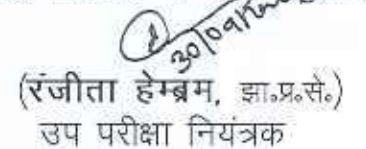 30/09/
(रंजीता हेम्ब्रम, झा॰प्र॰से॰)
उप परीक्षा नियंत्रक